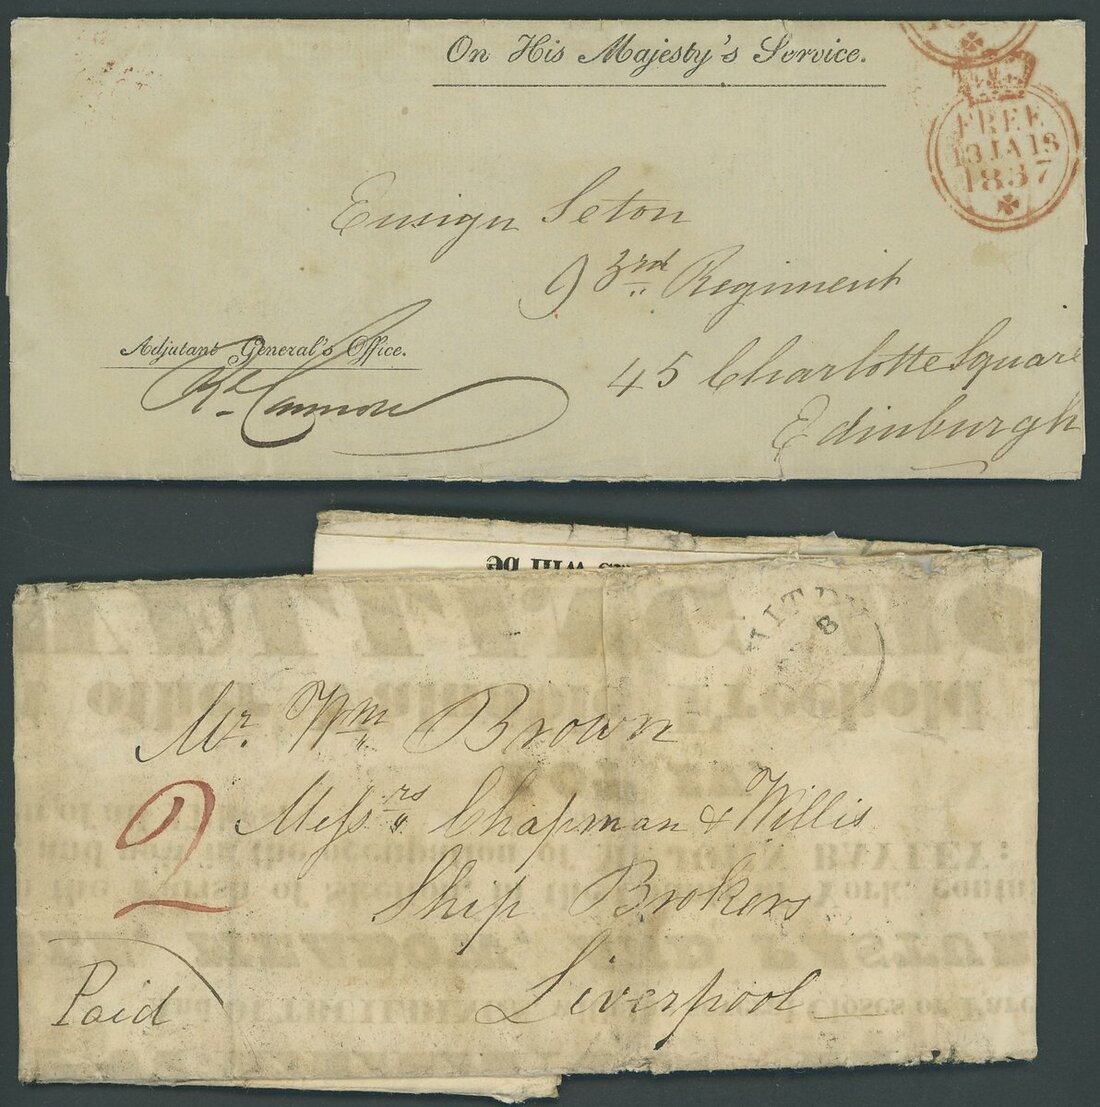 On His Majesty's Service.
FREE
13 JA 13
1837
Ensign Seton
93rd Regiment
Adjutant General's Office.
45 Charlotte Square
Edinburgh
will be
WHITBY
8
Mr. Wm Brown
2
Messrs Chapman & Willis
Ship Brokers
Liverpool
Paid